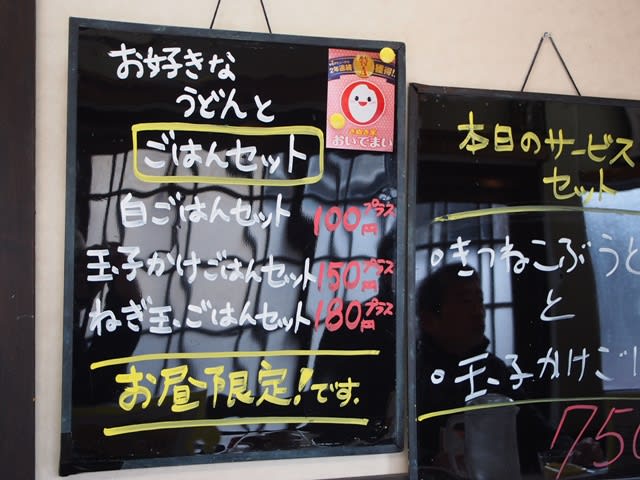 お好きな
うどんと
ごはんセット
白ごはんセット 100円プラス
玉子かけごはんセット 150円プラス
ねぎ玉ごはんセット 180円プラス
お昼限定!です.
2年連続 獲得!!
さぬき米
おいでまい
本日のサービス
セット
・きつねこぶう
と
・玉子かけご
750